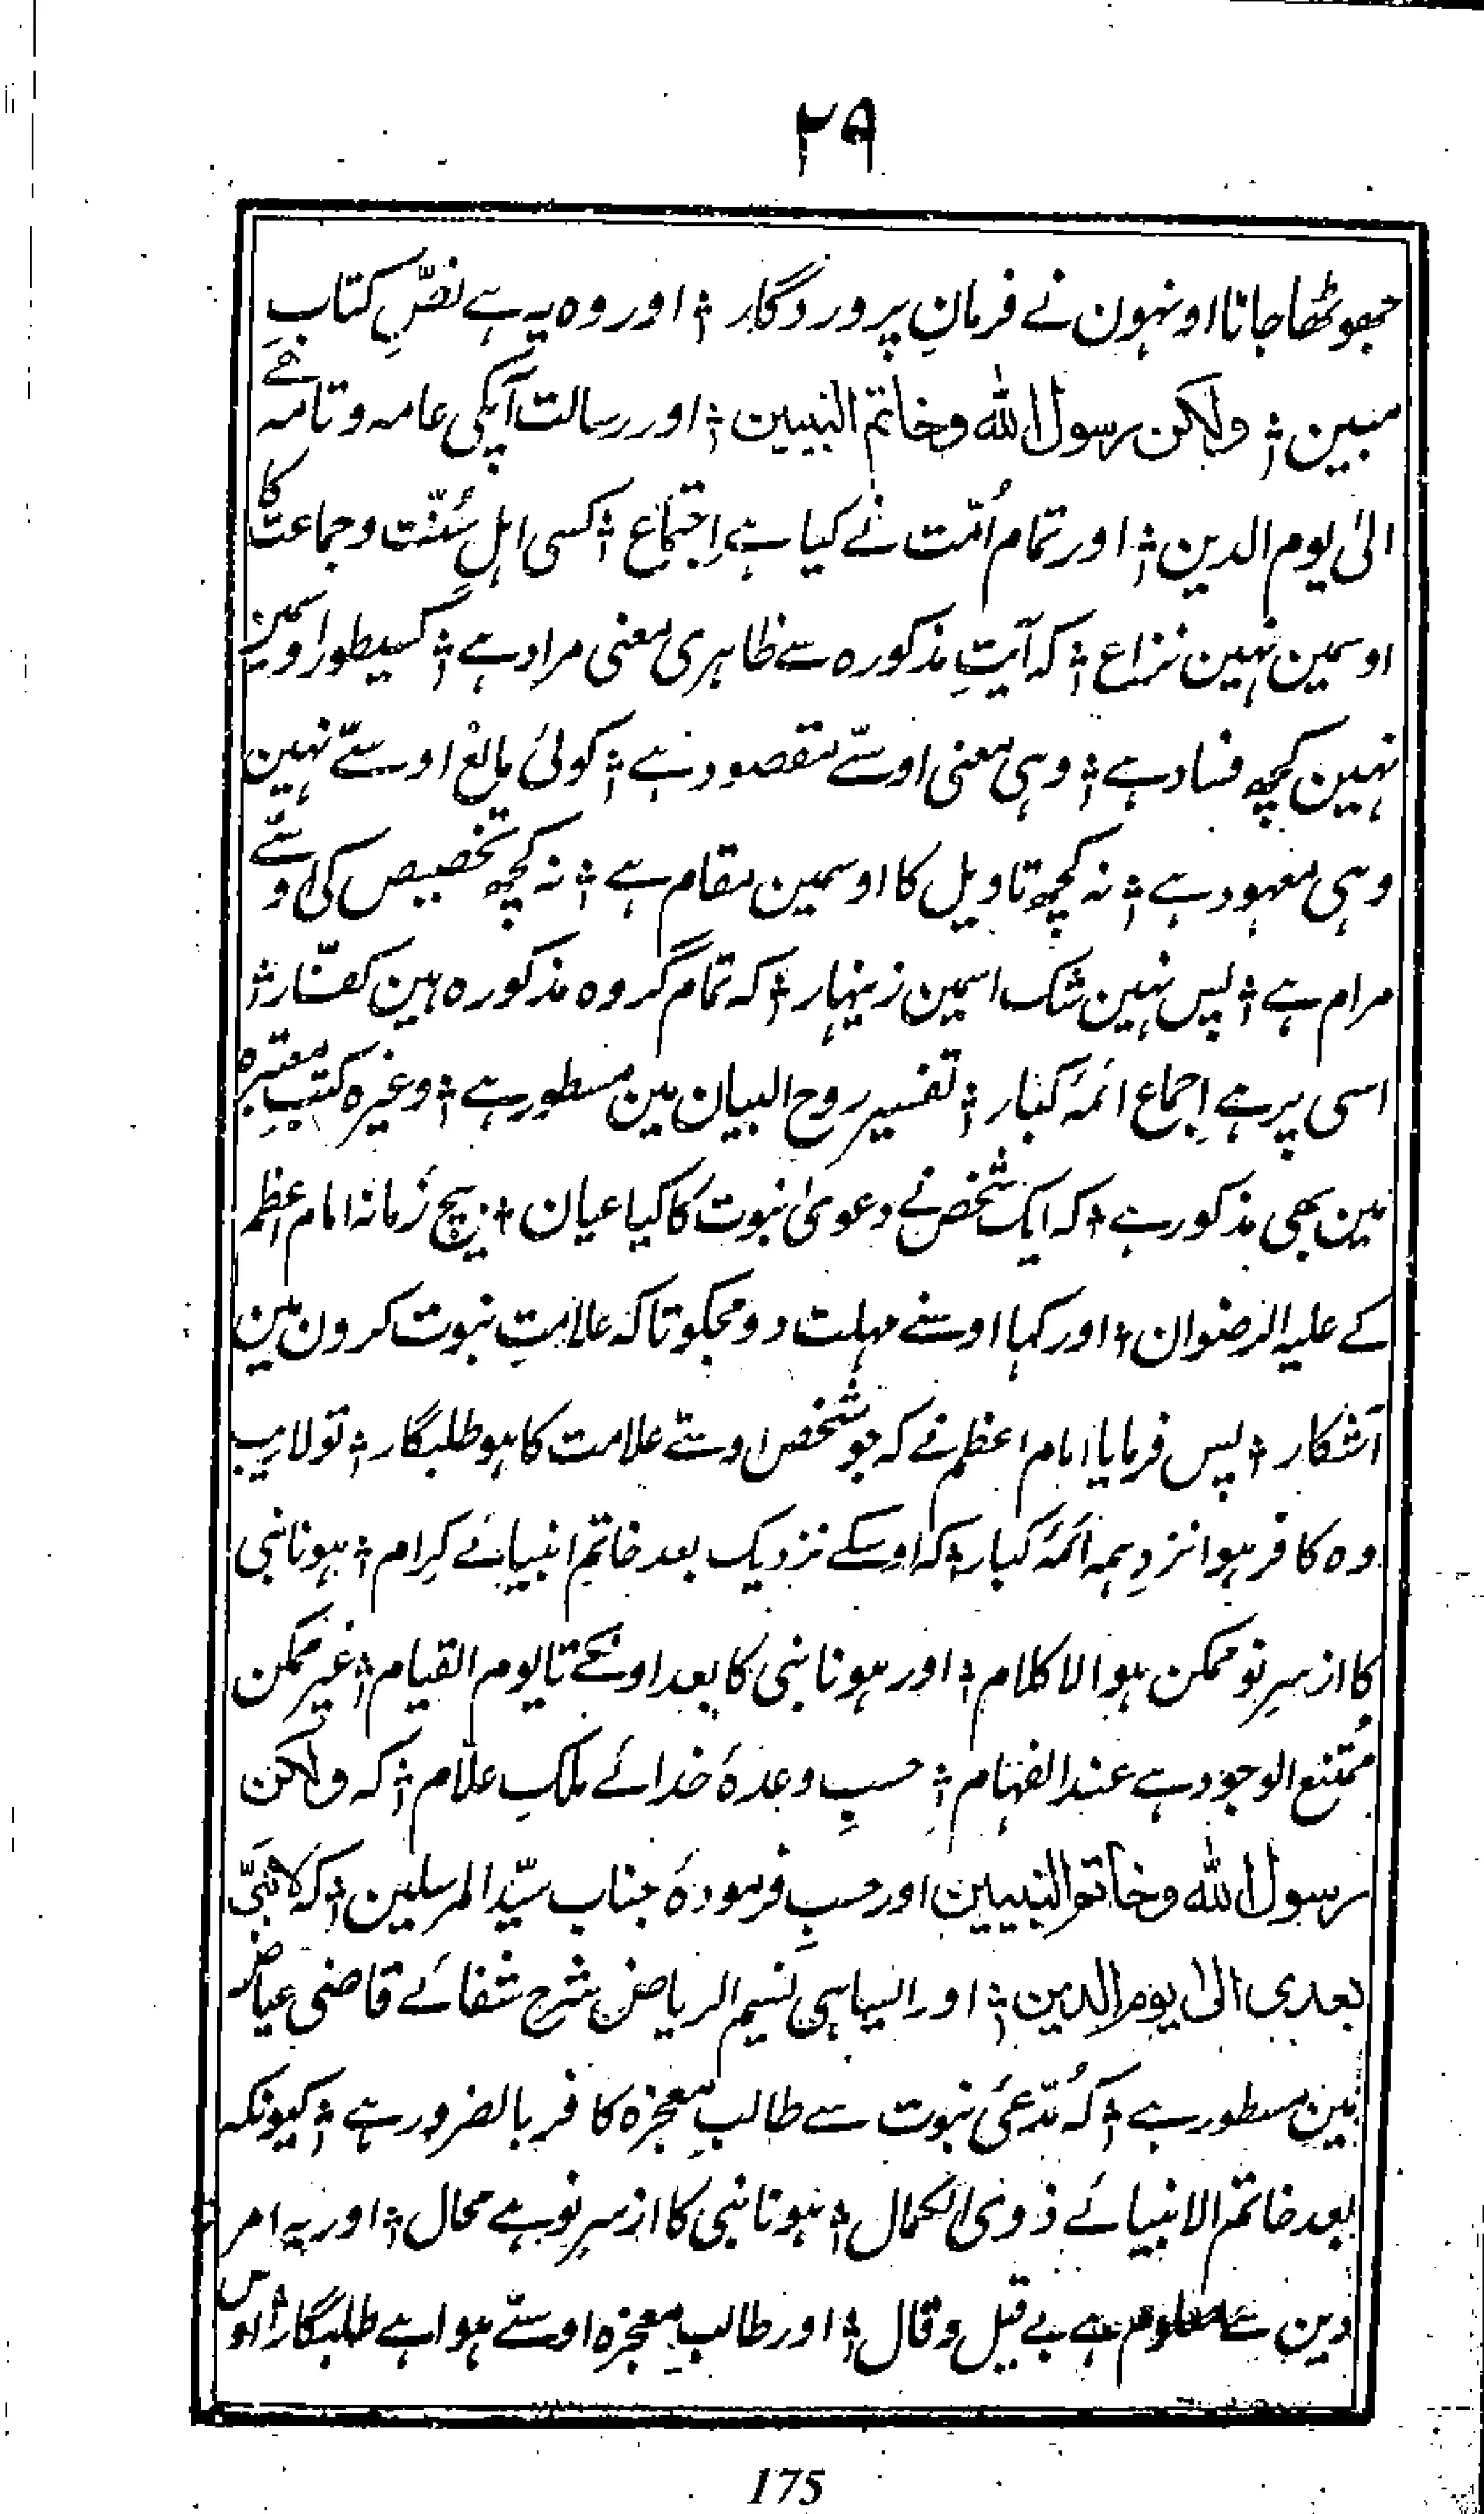 ۲۹
جھوٹھا جانا اونہون نے فرمانِ پروردگار ؛ اور وہ یہ ہے نصِّ کتابِ
مبین ؛ ولٰکن رسول اللہ وخاتم النبیین ؛ اور رسالت آپکی عامہ و تامہ ہے
الیٰ یوم الدین ؛ اور تمام اُمّت نے کیا ہے اِجتماع ؛ کسی اہلِ سُنّت وجماعت کا
اوسمین نہین نزاع ؛ کہ آیتِ مذکورہ سے ظاہری معنی مراد ہے ؛ کسیطور اوسمین
نہین کچھ فساد ہے ؛ وہی معنی اوسّے مقصود ہے ؛ کوئی مانع اوسّے نہین
وہی معہود ہے ؛ نہ کچھ تاویل کا اوسمین مقام ہے ؛ نہ کچھ تخصیص کی اوسّے
مرام ہے ؛ پس نہین شک اسمین زینہار ؛ کہ تمام گروہ مذکورہ ہین کفّار ؛
اسی پر ہے اِجماع ائمۂ کبار ؛ تفسیر روح البیان مین مسطور ہے ؛ وغیرہ کتبِ معتبرہ
مین بھی مذکور ہے ؛ کہ ایک شخص نے دعویٰ نبوت کا کیا عیان ؛ بیچ زمانہ امام اعظم
کے علیہ الرضوان ؛ اور کہا اوسنے مہلت دو مجکو تاکہ علامتِ نبوت کرون مین
آشکار ؛ پس فرمایا امام اعظم نے کہ جو شخص اوسّے علامت کا ہو طلبگار ؛ تو لاریب
وہ کافر ہوا نزدِ ہمہ ائمۂ کبار ؛ کہ اوسکے نزدیک بعد خاتمِ انبیائے کرام ؛ ہونا نبی
کا از سرِ نو ممکن ہوا لا کلام ؛ اور ہونا نبی کا بعد اونکے تا یوم القیام ؛ غیر ممکن
ممتنع الوجود ہے عند الفہام ؛ حسبِ وعدۂ خدائے ملکِ علّام ؛ کہ ولٰکن
رسول اللہ وخاتم النبیین اور حسبِ فرمودۂ جناب سیّد المرسلین ؛ کہ لا نبیّ
بعدی الیٰ یوم الدین ؛ اور ایسا ہی نسیم الریاض شرح شفائے قاضی عیاض
مین مسطور ہے ؛ کہ مُدّعیٔ نبوت سے طالبِ معجزہ کافر بالضرور ہے ؛ کیونکہ
بعد خاتم الانبیائے ذوی الکمال ؛ ہونا نبی کا از سرِ نو ہے محال ؛ اور یہ امر
دین سے معلوم ہے بے قیل وقال ؛ اور طالبِ معجزہ اوسّے ہوا ہے طلبگار اوس
175